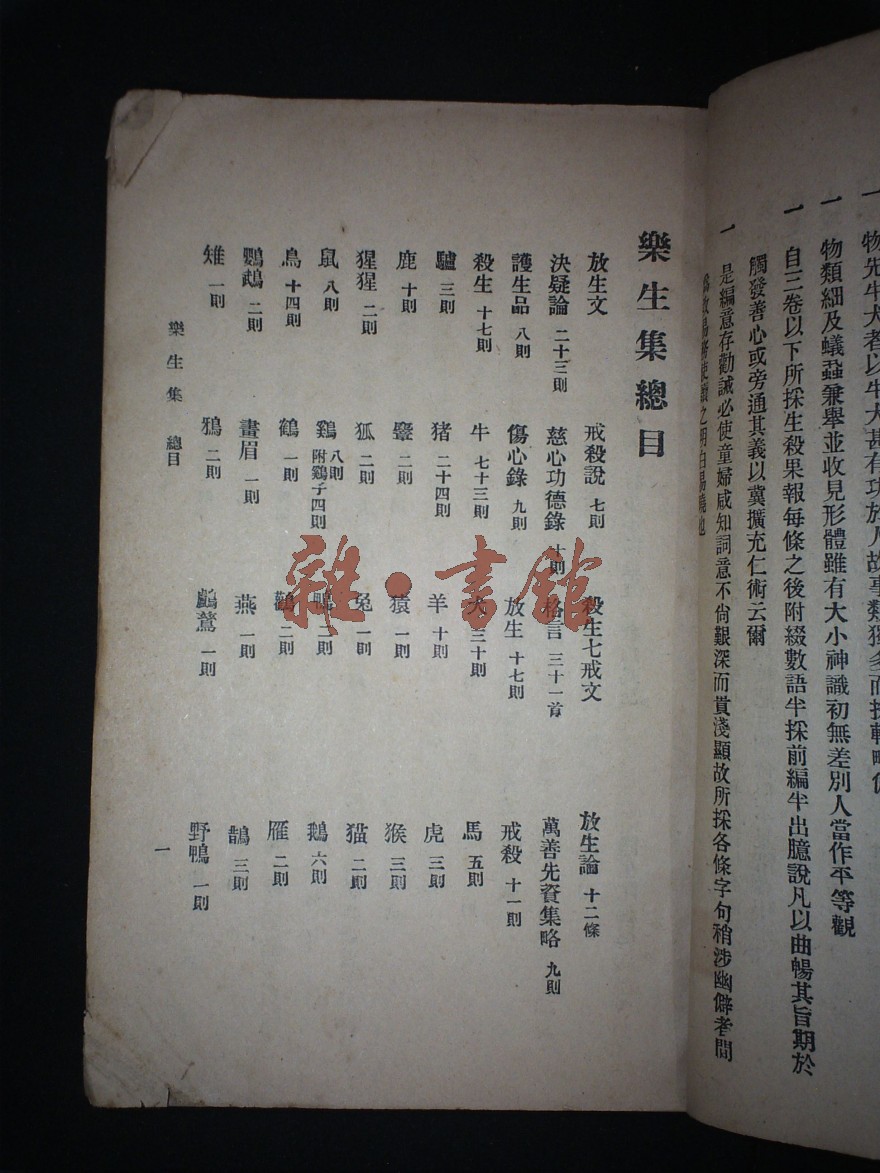 物類細及蟻蝨兼舉並收見形體雖有大小神識初無差別人當作平等觀
一 自三卷以下所採生殺果報每條之後附綴數語半採前編半出臆說凡以曲暢其旨期於
觸發善心或旁通其義以冀擴充仁術云爾
一 是編意存勸誡必使童婦咸知詞意不尙艱深而貴淺顯故所採各條字句稍涉幽僻者間
樂生集總目
放生文 戒殺說 七則 殺生七戒文 放生論 十二條
決疑論 二十三則 慈心功德錄 十則 格言 三十一首 萬善先資集略 九則
護生品 八則 傷心錄 九則 放生 十七則 戒殺 十一則
殺生 十七則 牛 七十三則 犬 三十則 馬 五則
驢 三則 猪 二十四則 羊 十則 虎 三則
鹿 十則 二則 猿 一則 猴 三則
猩猩 二則 狐 二則 兔 一則 猫 二則
鼠 八則 鷄 八則 附鷄子四則 鴨 二則 鵝 六則
鳥 十四則 鶴 一則 鸛 二則 雁 二則
鸚鵡 二則 畫眉 一則 燕 一則 鵲 三則
雉 一則 鴉 二則 一則 野鴨 一則
樂生集 總目
一
雜·書館